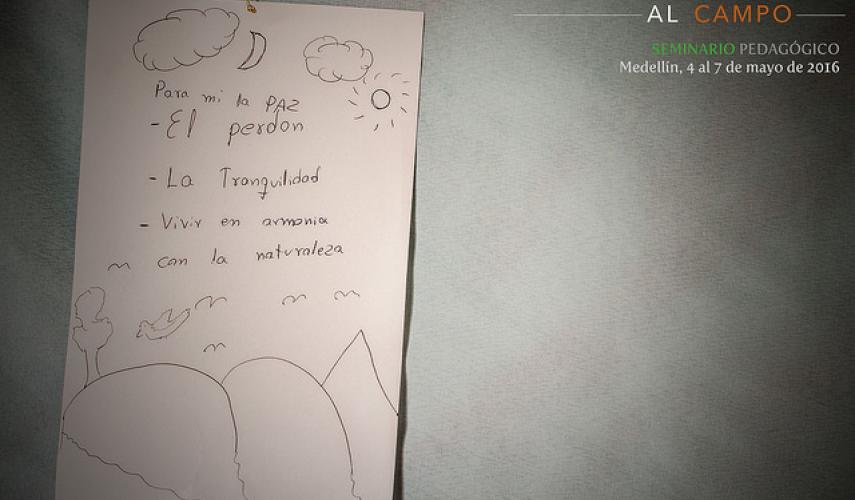 Para mi la PAZ
- El perdon
- La Tranquilidad
- Vivir en armonia
con la naturaleza
AL CAMPO
SEMINARIO PEDAGÓGICO
Medellín, 4 al 7 de mayo de 2016